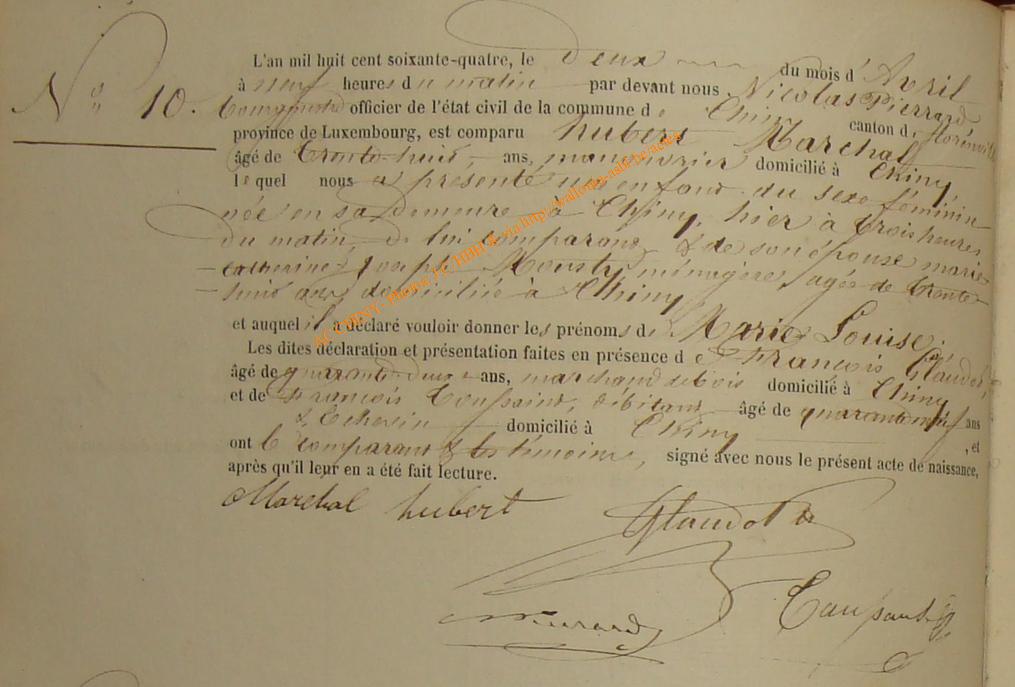 N° 10.
L'an mil huit cent soixante-quatre, le deux du mois d'Avril
à neuf heures du matin par devant nous Nicolas Pierrard
bourgmestre officier de l'état civil de la commune de Chiny canton de Florenville
province de Luxembourg, est comparu hubert Marchal
âgé de trente-huit, ans, manouvrier domicilié à Chiny,
lequel nous a présenté un enfant du sexe féminin
née en sa demeure à Chiny, hier à trois heures
du matin, de lui comparant & de son épouse marie
catherine joseph ménagère, agée de trente
huit ans, domiciliée à Chiny
et auquel il a déclaré vouloir donner les prénoms de Marie Louise.
Les dites déclaration et présentation faites en présence de François Glaudot,
âgé de quarante-deux ans, marchand de bois domicilié à Chiny
et de François Toussaint, débitant âgé de quarante-neuf ans
& Echevin domicilié à Chiny, et
ont le comparant & les témoins, signé avec nous le présent acte de naissance,
après qu'il leur en a été fait lecture.
Marchal hubert
Glaudot
Pierrard
Toussaint
AC CHINY - Photos J.C. HBLR via http://wallonia-asbl.be/actes